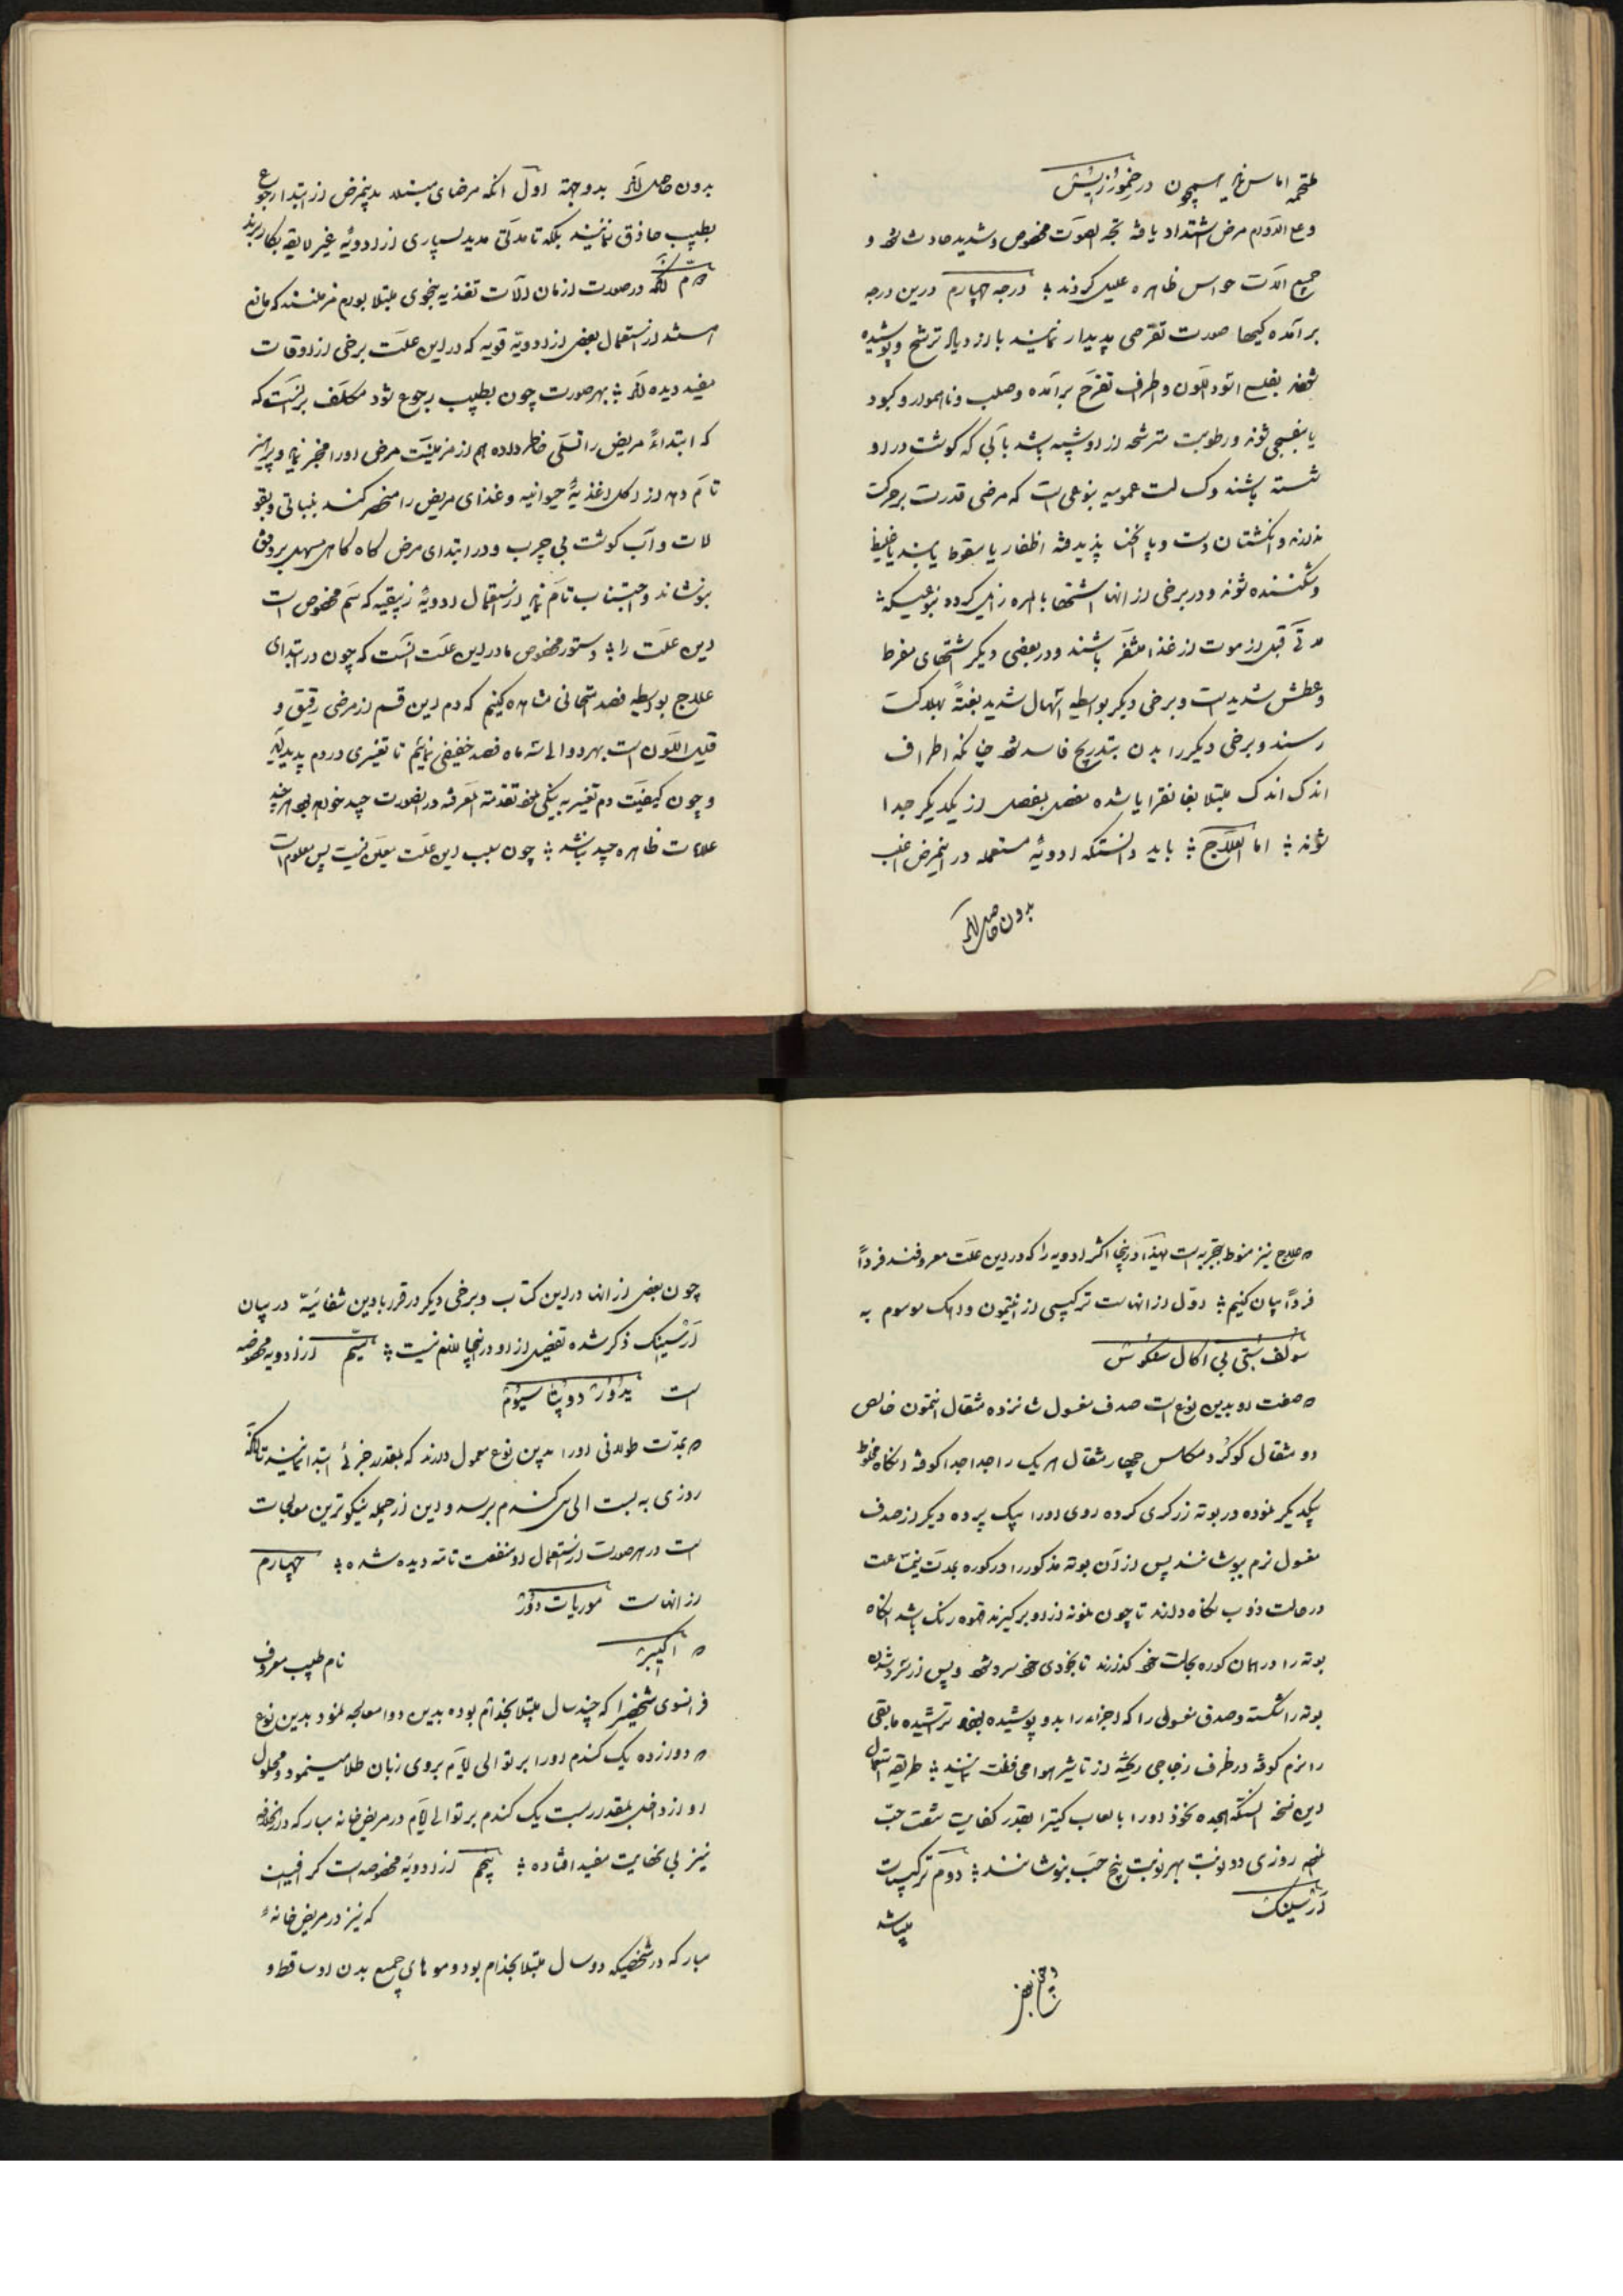 ملتحمه اماس نماید همچون در خموز ازیش
و علی الدوام مرض اشتداد یافته بحة الصوت مخصوص و شدید حادث شود و
جمیع آلات حواس ظاهره علیل گردند ؛ درجه چهارم درین درجه
برآمده‌گیها صورت تقرحی پدیدار نمایند با ازدیاد ترشح و پوشیده
شوند بفلس اسود اللون و اطراف تقرح برآمده و صلب و ناهموار و کبود
یا بنفسجی شوند و رطوبت مترشحه از او شبیه باشد بآبی که گوشت در او
شسته باشند و کسالت عمومیه بنوعی است که مرضی قدرت بر حرکت
ندارند و انگشتان دست و پا انحنا پذیرفته اظفار یا سقوط یابند یا غلیظ
و شکننده شوند و در برخی از آنها اشتها بالمره زایل گردد بنوعیکه
مدتی قبل از موت از غذا متنفر باشند و در بعضی دیگر اشتهای مفرط
و عطش شدید است و برخی دیگر بواسطه اسهال شدید بغتةً بهلاکت
رسند و برخی دیگر را بدن بتدریج فاسد شود چنانکه اطراف
اندک اندک مبتلا بغانقرایا شده مفصل بمفصل از یکدیگر جدا
شوند ؛ اما العلاج ؛ باید دانستکه ادویه مستعمله در اینمرض اغلب
بدون حاصل‌اند
بدون حاصل‌اند بدو جهة اول آنکه مرضای مبتلا بدینمرض از ابتدا رجوع
بطبیب حاذق ننمایند بلکه تا مدتی مدید بسیاری از ادویه غیر لایقه بکار برند
دوم آنکه در صورت ازمان آلات تغذیه بنحوی مبتلا بورم مزمنند که مانع
است از استعمال بعضی از ادویه قویه که در این علت برخی از اوقات
مفید دیده‌اند ؛ بهر صورت چون بطبیب رجوع شود مکلف بر آنست که
که ابتداءً مریض را تسلی خاطر داده هم از مزمنیت مرض او را مخبر نماید و پرهیز
تام دهد از اکل اغذیه حیوانیه و غذای مریض را منحصر کند بنباتی و بقو
لات و آب گوشت بی چرب و در ابتدای مرض گاه گاهی مسهل برودتی
بنوشاند و اجتناب تام نماید از استعمال ادویه زیبقیه که سم مخصوص است
این علت را ؛ دستور مخصوص ما در این علت آنست که چون در ابتدای
علاج بواسطه فصد امتحانی مشاهده کنیم که دم این قسم از مرضی رقیق و
قلیل اللون است بهر دو الی سه ماه فصد خفیفی نمائیم تا تغییری در دم پدید آید
و چون کیفیت دم تغییر به نیکی نمود تقدمة المعرفه در اینصورت جید خواهد بود هر چند
علامات ظاهره جید نباشد ؛ چون سبب این علت معین نیست پس معلوم است
که علاج نیز منوط بتجربه است لهذا در اینجا اکثر ادویه را که در این علت معروفند فرداً
فرداً بیان کنیم ؛ اول از آنهاست ترکیبی از انتیمون و آهک موسوم به
سولف ستیبی آکال سلکوش
که صفت او بدین نوع است صدف مغسول شانزده مثقال انتیمون خالص
دو مثقال گوگرد مکلس چهار مثقال هر یک را جدا جدا کوفته آنگاه مخلوط
یکدیگر نموده در بوته زرگری کرده روی او را بیک پرده دیگر از صدف
مغسول نرم بپوشانند پس از آن بوته مذکور را در کوره بمدت نیمساعت
در حالت ذوب نگاه دارند تا چون نمونه از او بر گیرند قهوه رنگ باشد آنگاه
بوته را در همان کوره بحالت خود گذارند تا بخودی خود سرد شود و پس از سرد شدن
بوته را شکسته و صدف مغسولی را که اجزاء را بدو پوشیده بودند تراشیده مابقی
را نرم کوفته در ظرف زجاجی ریخته از تاثیر هوا محافظت نمایند ؛ طریقه استعمال
این نسخه آنستکه هجده نخود او را با لعاب کتیرا بقدر کفایت شصت حب
نموده روزی دو نوبت بهر نوبت پنج حب بنوشانند ؛ دوم ترکیبات
ارسنیک میباشد
چون بعضی
چون بعضی از آنها در این کتاب و برخی دیگر در قرابادین شفائیه در بیان
ارسنیک ذکر شده تفضیل از او در اینجا لازم نیست ؛ سیم از ادویه مخصوصه
است یدور دو پتاسیوم
که بمدت طولانی او را بدین نوع معمول دارند که بمقدار جزئی ابتدا نمایند تا آنکه
روزی به بیست الی سی گندم برسد و این از جمله نیکوترین معالجات
است در هر صورت از استعمال او منفعت تامه دیده شده ؛ چهارم
از آنهاست موریات دور
که آلیبر نام طبیب معروف
فرانسوی شخصی را که چند سال مبتلا بجذام بوده بدین دوا معالجه نمود بدین نوع
که دوازده یک گندم او را بر توالی ایام بروی زبان طلا مینمود و محلول
او از داخل بمقدار بیست یک گندم بر توالی ایام در مریض خانه مبارکه دارالخلافه
نیز بی نهایت مفید افتاده ؛ پنجم از ادویه مخصوصه است
که نیز در مریض خانه
مبارکه در شخصیکه دو سال مبتلا بجذام بود و موهای جمیع بدن او ساقط و